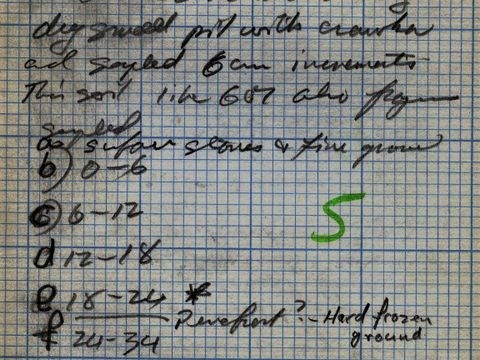 dug small pit with crowbar
and sampled 6 cm increments
This soil like 607 also frozen
sampled
a) surface stones & fine ground
b) 0-6
c) 6-12
d 12-18
e 18-24 *
Permafrost? - Hard frozen
ground
f 24-34
5